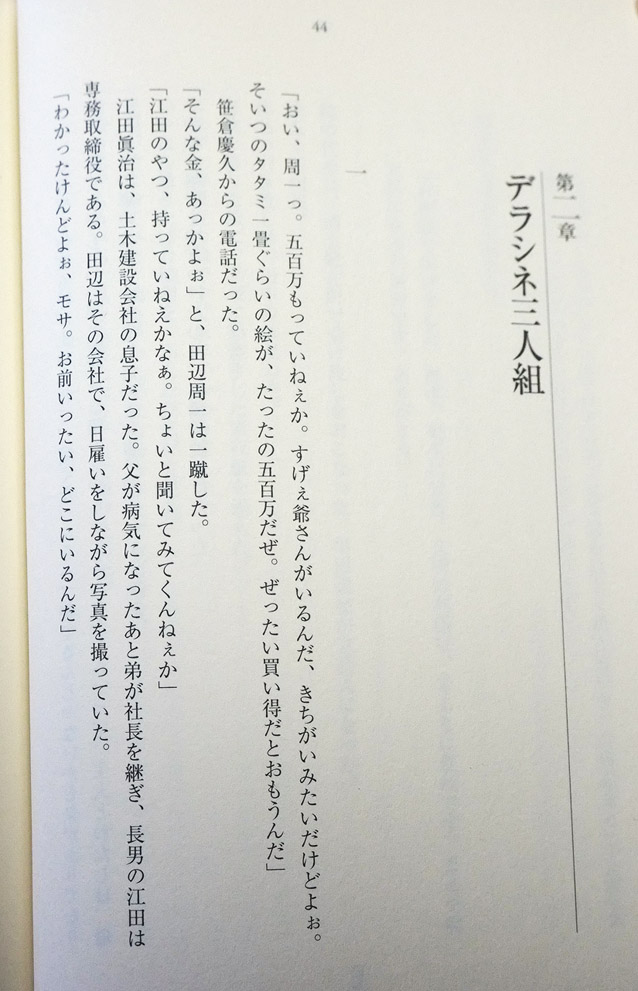 44
第二章
デラシネ三人組
一
「おい、周一っ。五百万もっていねぇか。すげぇ爺さんがいるんだ、きちがいみたいだけどよぉ。
そいつのタタミ一畳ぐらいの絵が、たったの五百万だぜ。ぜったい買い得だとおもうんだ」
笹倉慶久からの電話だった。
「そんな金、あっかよぉ」と、田辺周一は一蹴した。
「江田のやつ、持っていねえかなぁ。ちょいと聞いてみてくんねぇか」
江田眞治は、土木建設会社の息子だった。父が病気になったあと弟が社長を継ぎ、長男の江田は
専務取締役である。田辺はその会社で、日雇いをしながら写真を撮っていた。
「わかったけんどよぉ、モサ。お前いったい、どこにいるんだ」